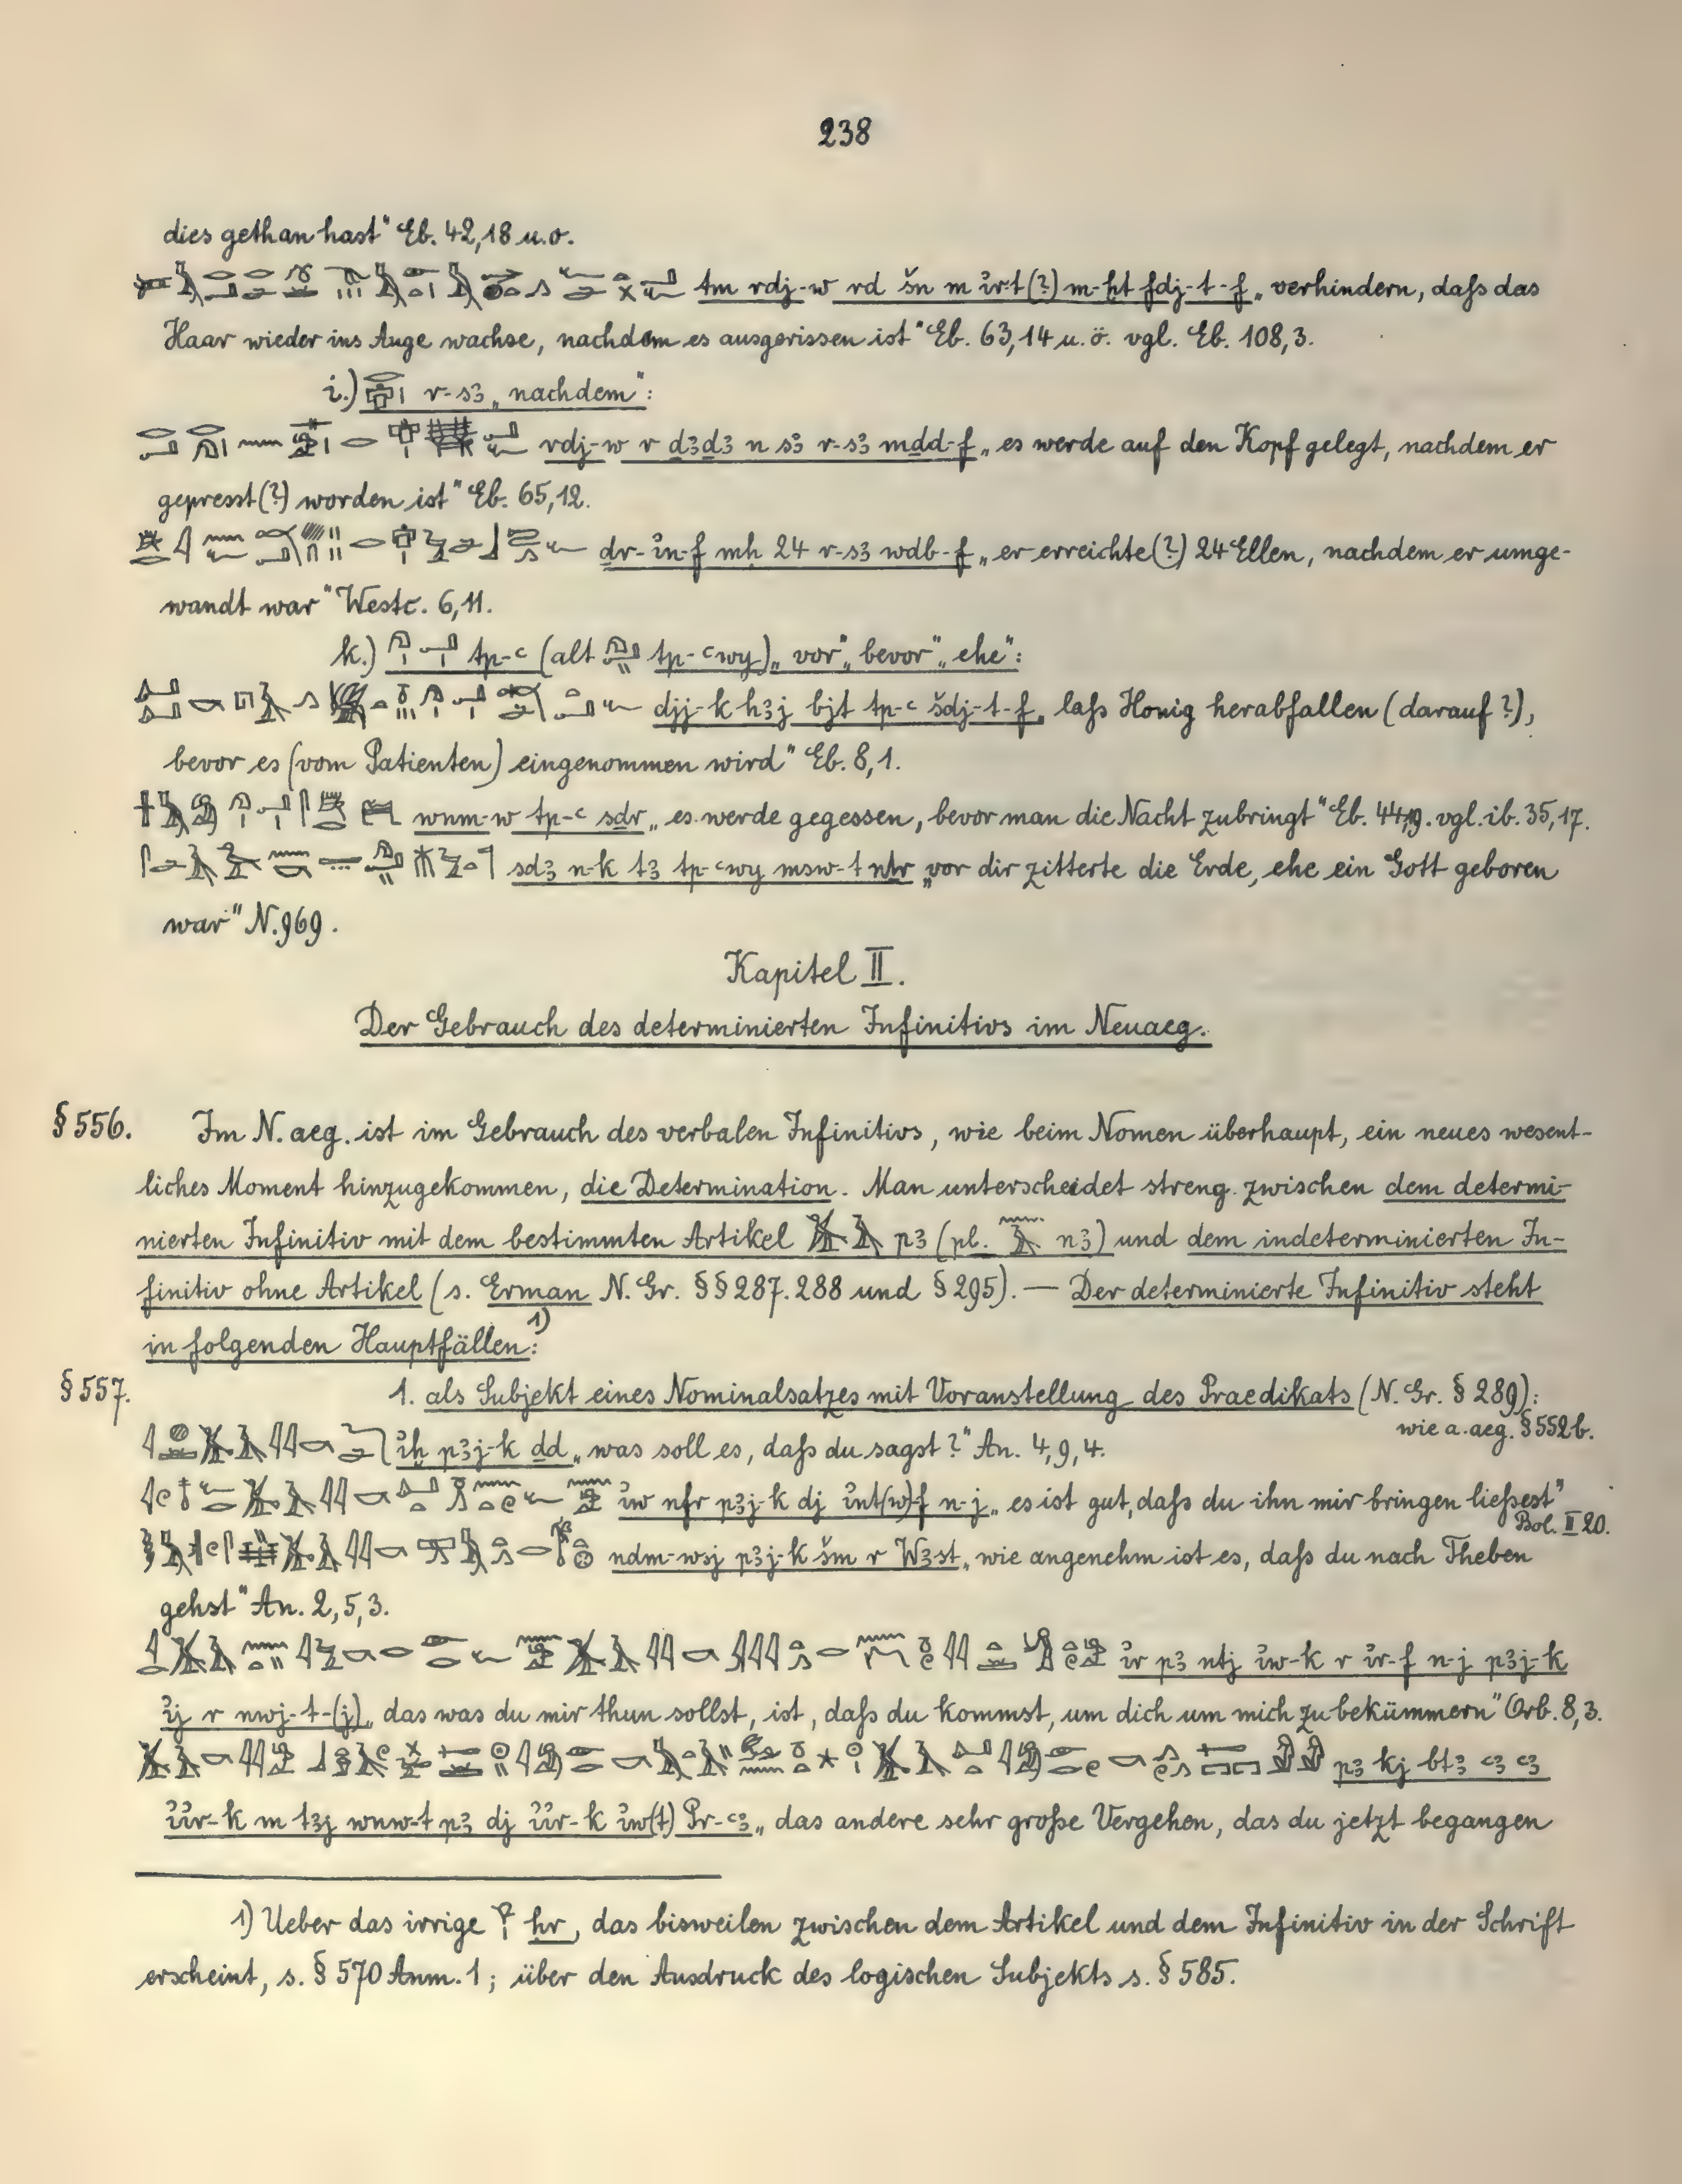 238
dies gethan hast" Eb. 42,18 u.o.
tm rdj-w rd šn m ỉrt(?) m-ḫt fdj-t-f „verhindern, daſs das
Haar wieder ins Auge wachse, nachdem es ausgerissen ist" Eb. 63,14 u. ö. vgl. Eb. 108,3.
i.) r-sꜣ „nachdem":
rdj-w r ḏꜣḏꜣ n sꜣ r-sꜣ mḏd-f „es werde auf den Kopf gelegt, nachdem er
gepresst(?) worden ist" Eb. 65,12.
ḏr-ỉn-f mḥ 24 r-sꜣ wdb-f „er erreichte(?) 24 Ellen, nachdem er umge-
wandt war" Westc. 6,11.
k.) tp-ꜥ (alt tp-ꜥwy) „vor", „bevor", „ehe":
djj-k hꜣj bjt tp-ꜥ šdj-t-f „laſs Honig herabfallen (darauf?),
bevor es (vom Patienten) eingenommen wird" Eb. 8,1.
wnm-w tp-ꜥ sḏr „es werde gegessen, bevor man die Nacht zubringt" Eb. vgl. ib. 35,17.
sdꜣ n-k tꜣ tp-ꜥwy msw-t nṯr „vor dir zitterte die Erde, ehe ein Gott geboren
war" N. 969.
Kapitel II.
Der Gebrauch des determinierten Infinitivs im Neuaeg.
§ 556. Im N. aeg. ist im Gebrauch des verbalen Infinitivs, wie beim Nomen überhaupt, ein neues wesent-
liches Moment hinzugekommen, die Determination. Man unterscheidet streng zwischen dem determi-
nierten Infinitiv mit dem bestimmten Artikel pꜣ (pl. nꜣ) und dem indeterminierten In-
finitiv ohne Artikel (s. Erman N. Gr. §§ 287. 288 und § 295). — Der determinierte Infinitiv steht
in folgenden Hauptfällen: 1)
§ 557. 1. als Subjekt eines Nominalsatzes mit Voranstellung des Praedikats (N. Gr. § 289):
wie a. aeg. § 552b.
ỉḫ pꜣj-k ḏd „was soll es, daſs du sagst?" An. 4,9,4.
ỉw nfr pꜣj-k dj ỉnt(w)-f n-j „es ist gut, daſs du ihn mir bringen lieſsest"
Bol. II 20.
nḏm-wsj pꜣj-k šm r Wꜣst „wie angenehm ist es, daſs du nach Theben
gehst" An. 2,5,3.
ỉr pꜣ ntj ỉw-k r ỉr-f n-j pꜣj-k
ỉj r nwj-t-(j) „das was du mir thun sollst, ist, daſs du kommst, um dich um mich zu bekümmern" Orb. 8,3.
pꜣ kj btꜣ ꜥꜣ ꜥꜣ
ỉỉr-k m tꜣj wnw-t pꜣ dj ỉỉr-k ỉw(t) Pr-ꜥꜣ „das andere sehr groſse Vergehen, das du jetzt begangen
1) Ueber das irrige ḥr, das bisweilen zwischen dem Artikel und dem Infinitiv in der Schrift
erscheint, s. § 570 Anm. 1; über den Ausdruck des logischen Subjekts s. § 585.